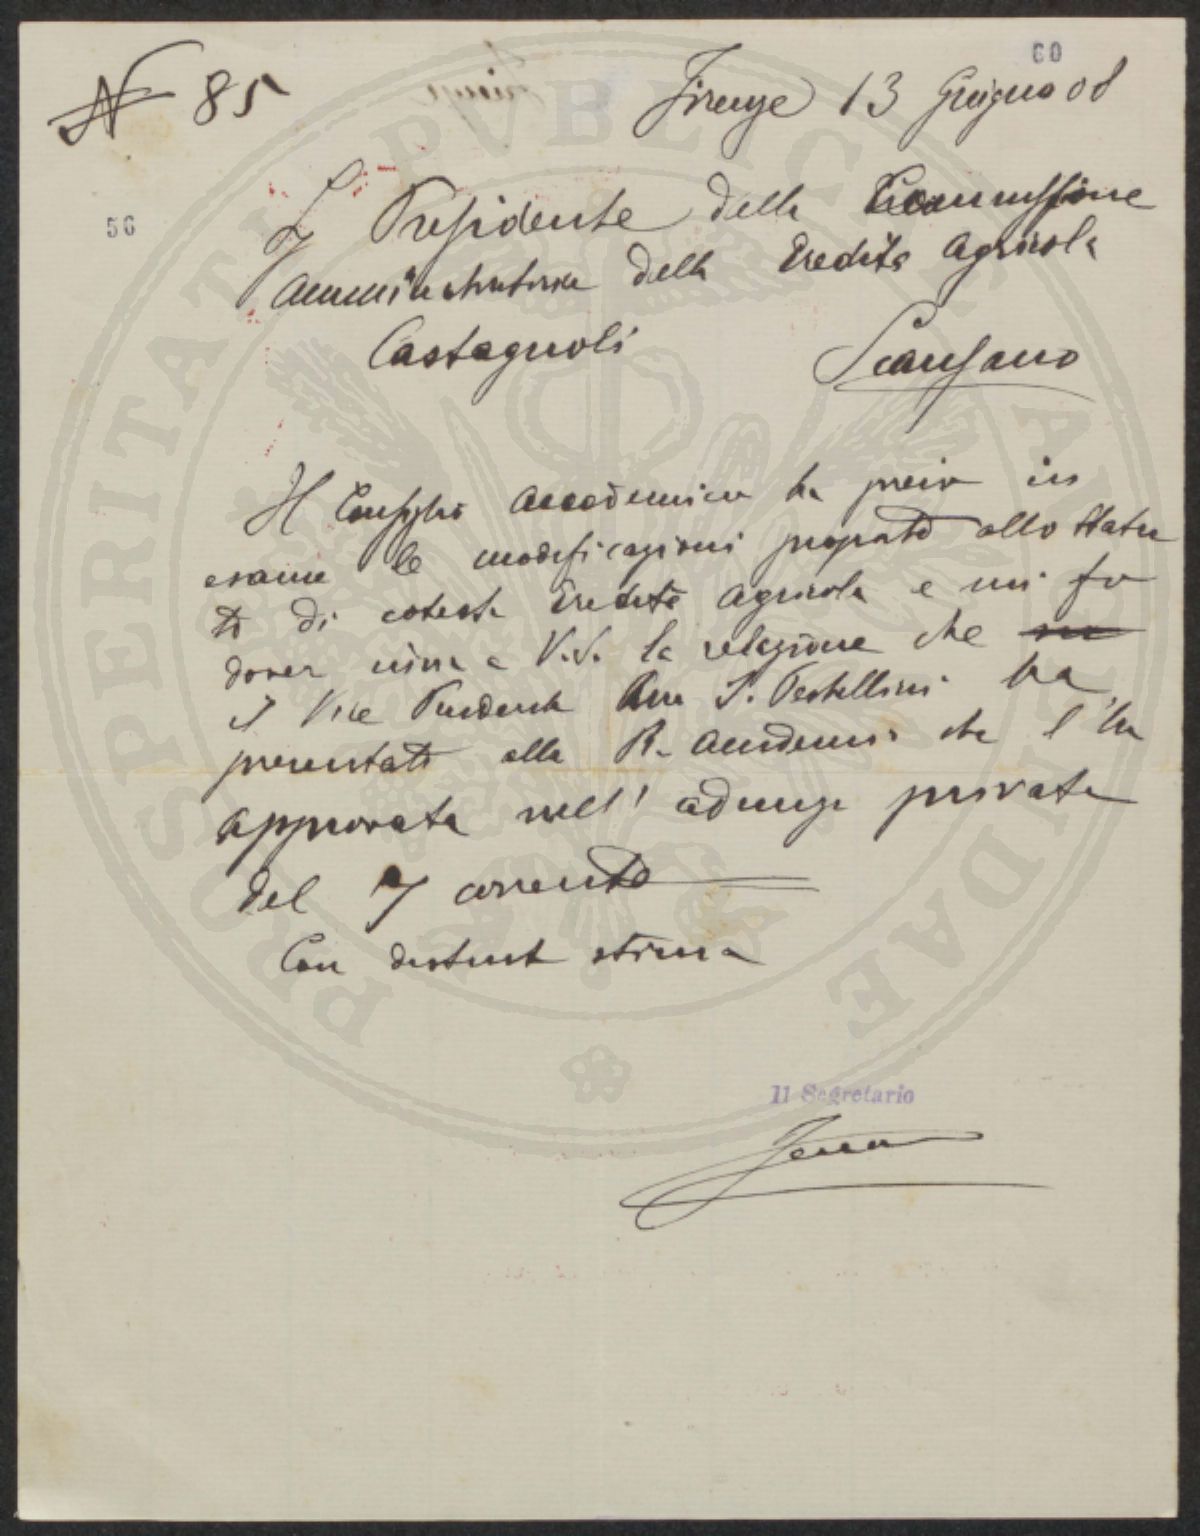 N 85
60
Firenze 13 Giugno 08
56
Presidente della Commissione
amministratrice della Eredità Agricola
Castagnoli
Scansano
Il Consiglio Accademico ha preso in
esame le modificazioni proposte allo Statu
to di cotesta Eredità Agricola e mi fo
dover a V.S. la relazione che
Il Vice Presidente P. Pestellini ha
presentato alla R. Accademia che l'ha
approvata nell' adunza privata
del 7 corrente
Con distinta stima
Il Segretario
PROSPERITATI PUBLICAE AUGENDAE